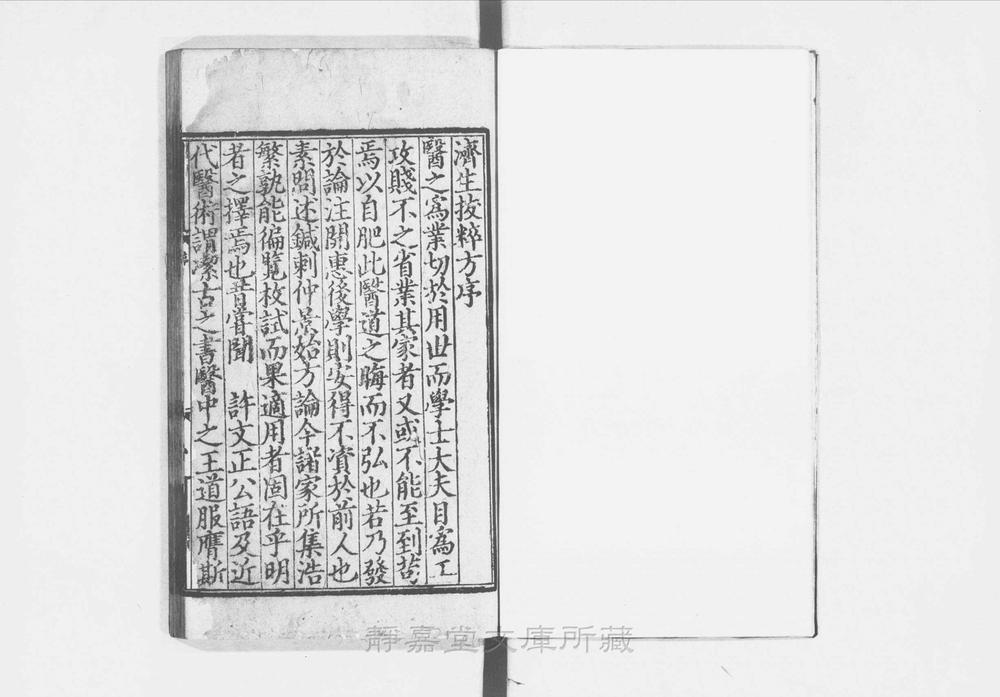 濟生拔粹方序
醫之爲業切於用世而學士大夫目爲工
攻賤不之省業其家者又或不能至到苟
焉以自肥此醫道之晦而不弘也若乃發
於論注開惠後學則安得不資於前人也
素問述鍼刺仲景始方論今諸家所集浩
繁孰能徧覽枚試而果適用者固在乎明
者之擇焉也昔嘗聞　許文正公語及近
代醫術謂潔古之書醫中之王道服膺斯
序
靜嘉堂文庫所藏